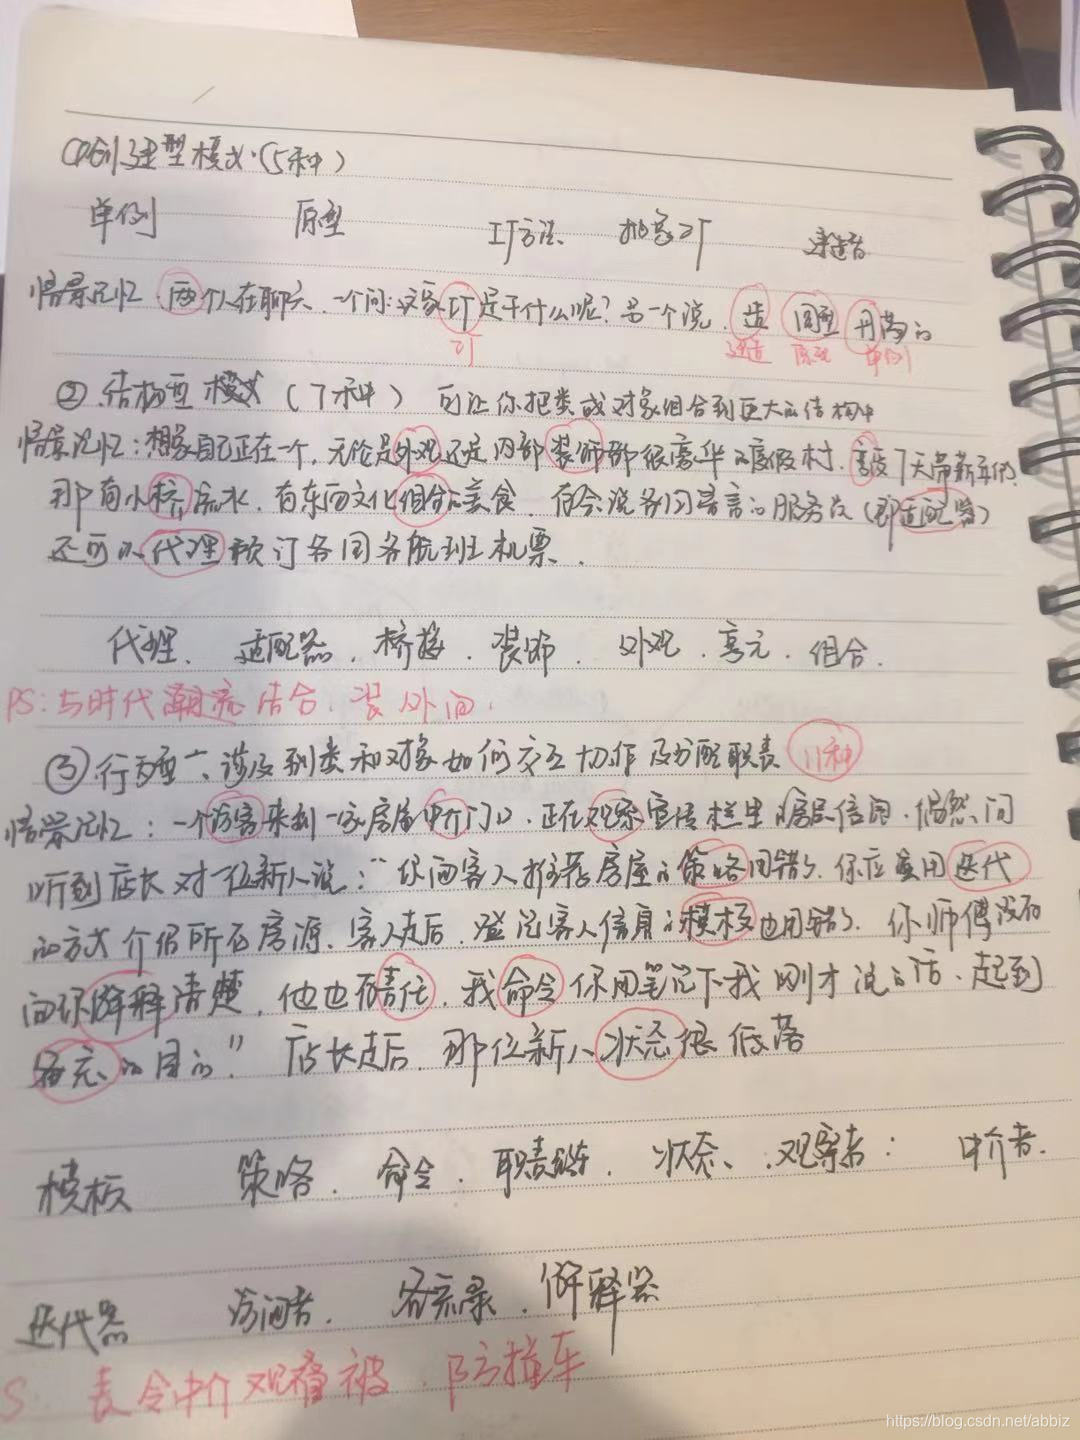 ①创建型模式:(5种)
单例 原型 工厂方法 抽象工厂 建造者
情景记忆:两个人在聊天,一个问:这家工厂是干什么呢?另一个说,造圆型单
工厂 建造 原型 单例
②.结构型模式(7种) 可让你把类或对象组合到更大的结构中
情景记忆:想象自己正在一个,无论是外观还是内部装饰都很豪华的度假村,享受7天带薪年假,
那有小桥流水,有东西文化组合的美食,有会说各国语言的服务员(即适配器)
还可以代理预订各国各航班机票.
代理、适配器、桥接、装饰、外观、享元、组合.
PS:与时代潮流结合,装外
③行为型:涉及到类和对象如何交互切作及分配职责 11种
情景记忆:一个访客来到一家房屋中介门口,正在观察宣传栏里的房屋信息,偶然间
听到店长对一位新人说:“你向客人推荐房屋的策略用错了,你应要用迭代
的方式介绍所有房源、客人走后,登记客人信息的模板也用错了,你师傅没有
向你解释清楚,他也有责任,我命令你用笔记下我刚才说的话、起到
备忘的目的”店长走后,那位新人状态很低落
模板 策略、命令、职责链、状态、观察者: 中介者.
迭代器 访问者 备忘录、解释器
S. 责令中介观 被,防撞车
https://blog.csdn.net/abbiz